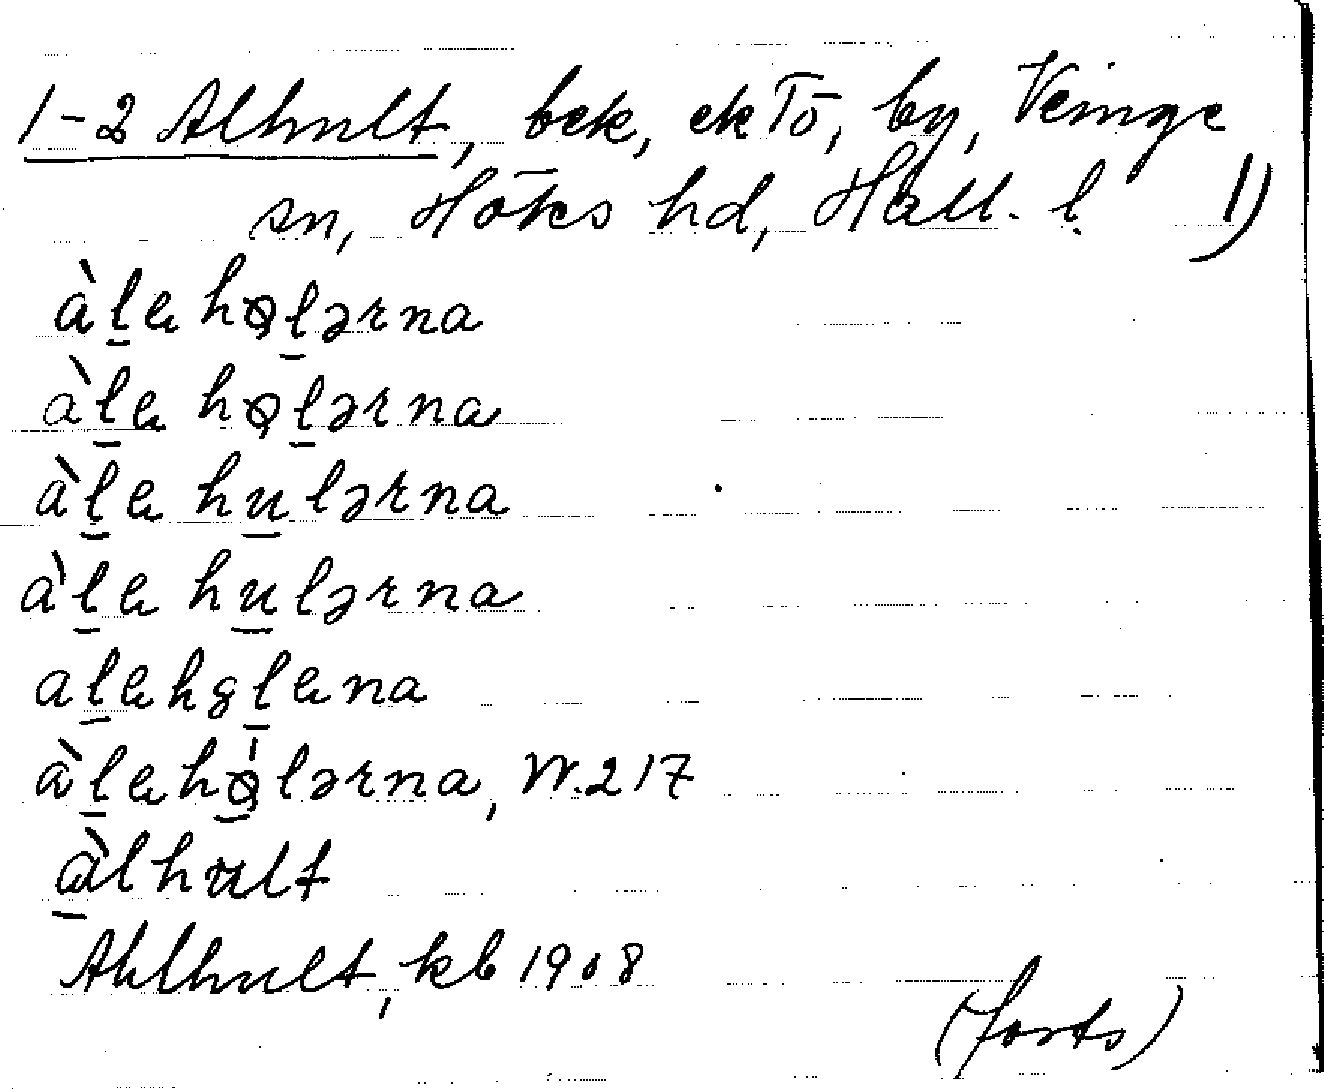 1-2 Alhult, bek, ek Tō, by, Veinge
sn, Höks hd, Hall. l. 1)
àl̲a hǫl̲ərna
àl̲a hǫl̲ərna
àl̲a hu̲lərna
àl̲a hu̲lərna
al̲ahgl̲ana
àl̲ahǫ̲lərna, W. 217
à̲lhult
Ahlhult, kb 1908
(forts)